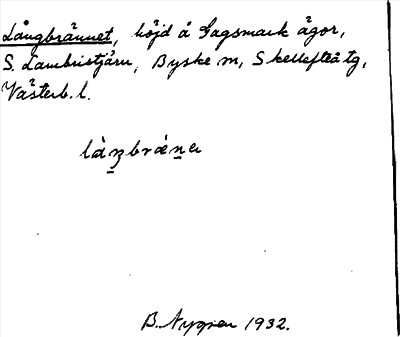 Långbrännet, höjd å Gagsmark ägor,
S. Lambristjärn, Byske sn, Skellefteå tg,
Västerb. l.
B. Nygren 1932.